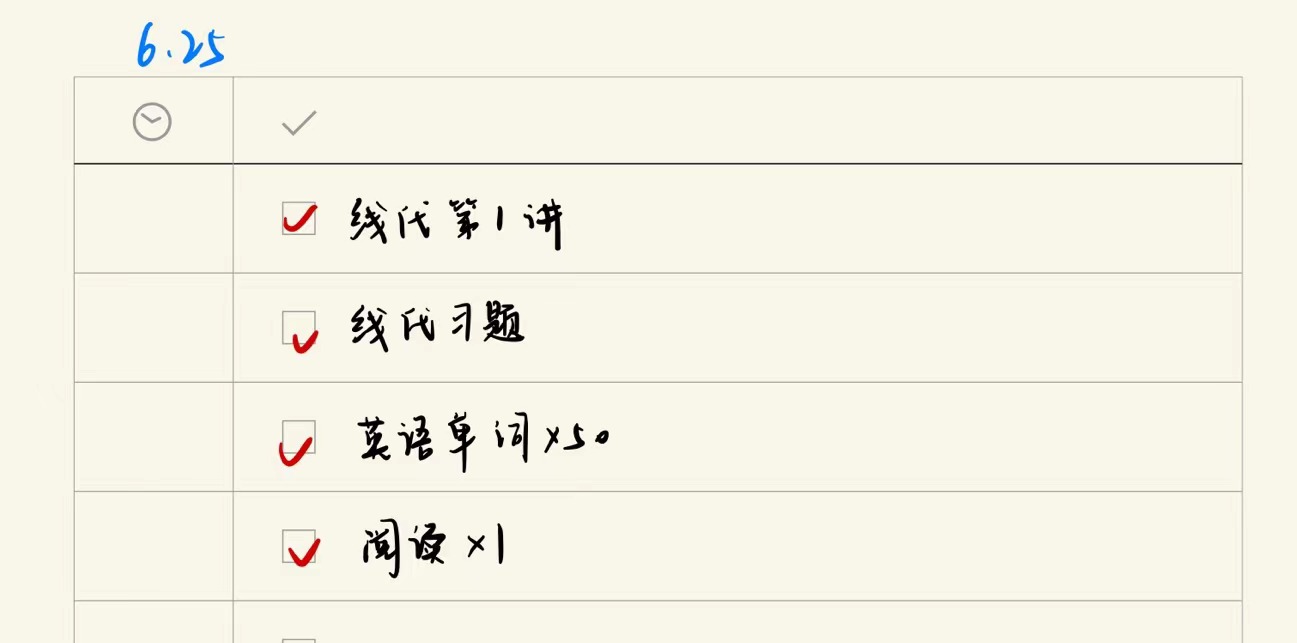 6.25
线代第1讲
线代习题
英语单词×50
阅读×1